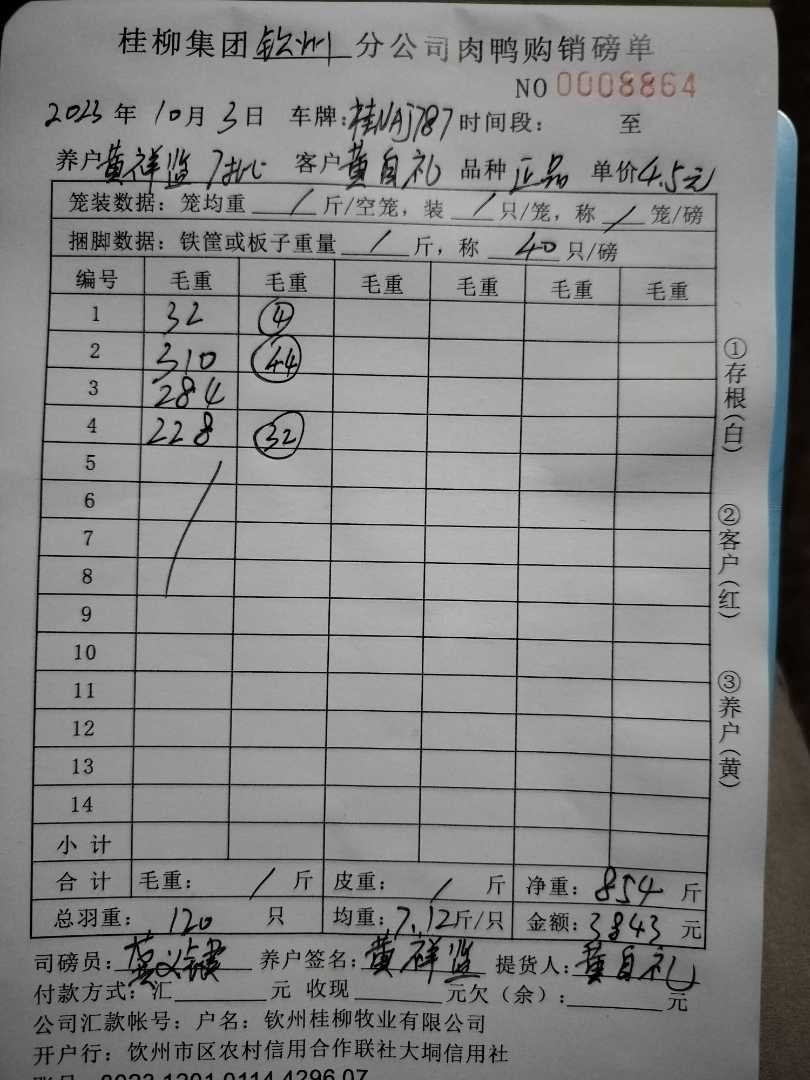 桂柳集团钦州分公司肉鸭购销磅单
NO 0008864
2023年10月3日 车牌:桂NAJ787 时间段: 至
养户黄祥监 客户黄自礼 品种正品 单价4.5元
笼装数据:笼均重 / 斤/空笼,装 / 只/笼,称 / 笼/磅
捆脚数据:铁筐或板子重量 / 斤,称 40 只/磅
编号 毛重 毛重 毛重 毛重 毛重 毛重
1 32 ④
2 310 44
3 284
4 228 32
5
6
7
8
9
10
11
12
13
14
小计
合计 毛重: / 斤 皮重: / 斤 净重: 854 斤
总羽重: 120 只 均重:7.12斤/只 金额:3843元
司磅员: 养户签名:黄祥监 提货人:黄自礼
付款方式:汇 元 收现 元欠(余): 元
公司汇款帐号:户名:钦州桂柳牧业有限公司
开户行:钦州市区农村信用合作联社大垌信用社
①存根(白)
②客户(红)
③养户(黄)